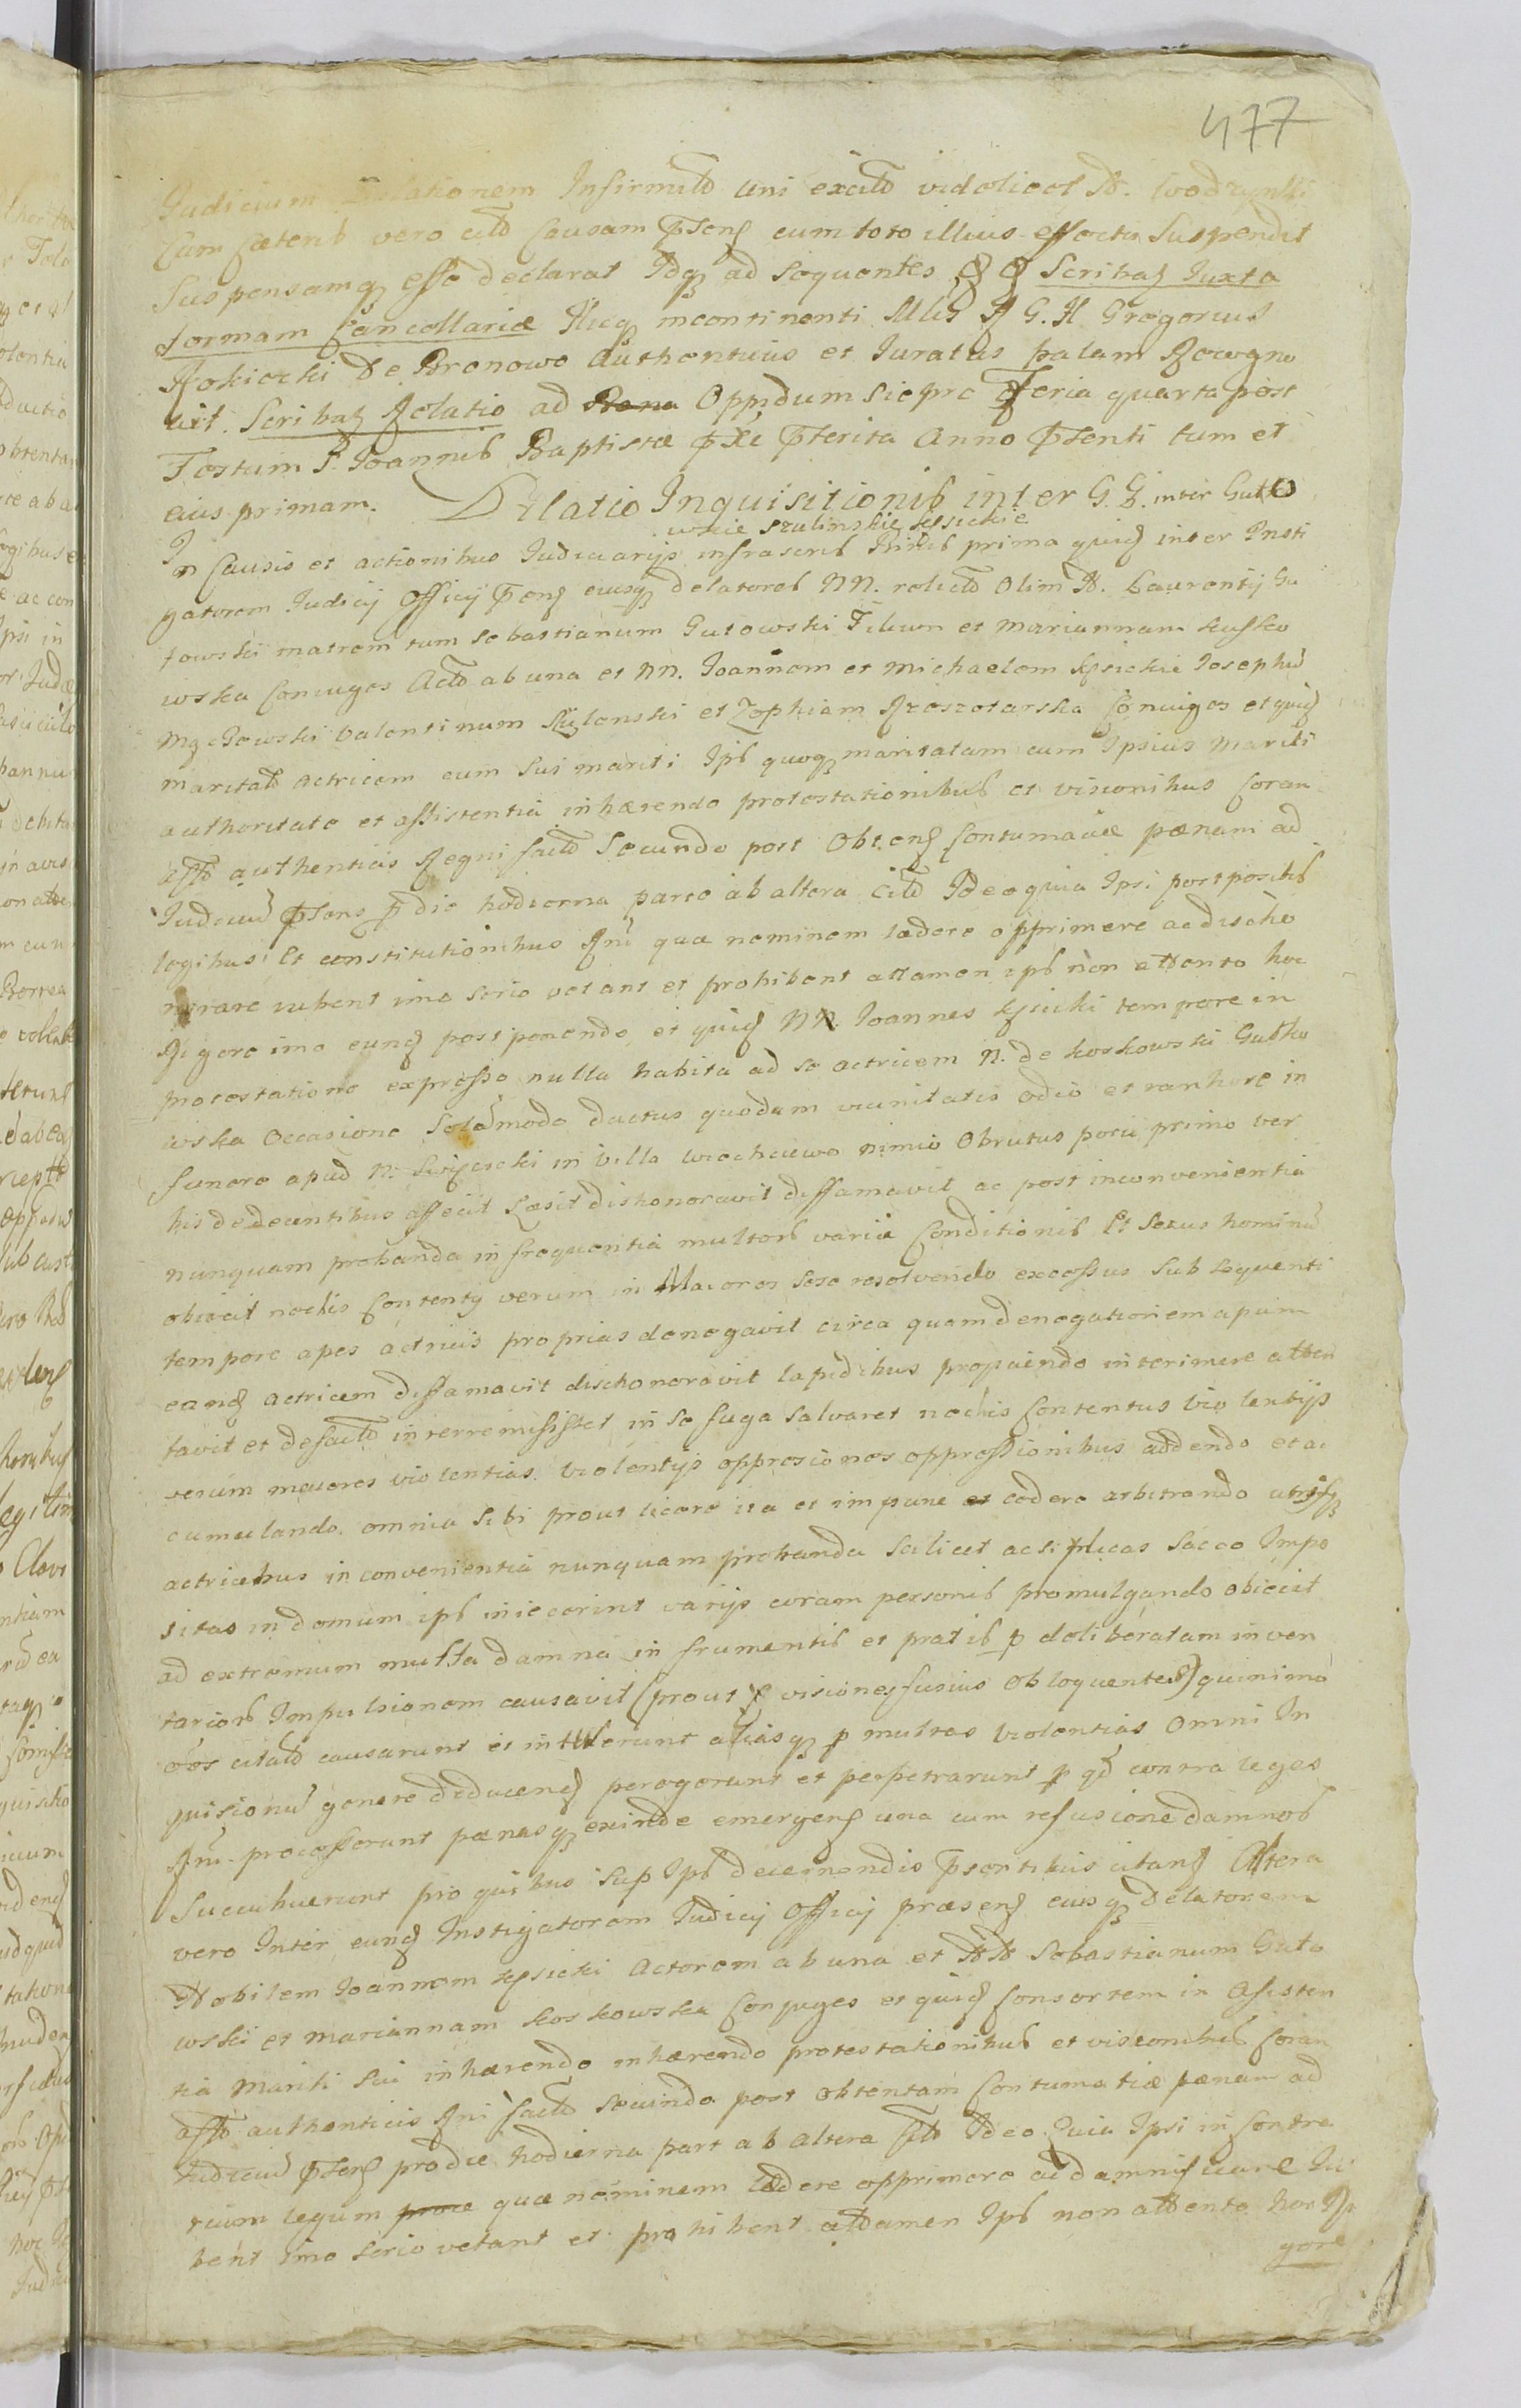 477
Judicium Infirmitte uni excitto videlicet N. Wodzynski
Cum Cæteris vero citto Causam pnsens cum toto illius effectu Suspendit
Suspensamq esse declarat Idq ad sequentes Scribatur Iuxta
formam Cancellariæ Hicq incontinenti Mgs R G. H Gregorius
Rokicki De Bronowo Authenticus et Iuratus palam Recogno
vit. Scribatur Relatio ad Oppidum Sierpc Feria quarta post
Festum S. Joannis Baptistæ pxe pterita Anno pnsenti tum et
eius primam. Dilatio Inquisitionis inter G. G. inter Guto
wskie Szulinskie Kęsickie
In Causis et actionibus Iudiciarijs infrascris Ptibus prima quid inter Insti
gatorem Iudicij Officij pnsens eiusq delatores NN. relicto Olim N. Laurentij Gu
towski matrem tum Sebastianum Gutowski Filium et Mariannam kosko
wska Coniuges Acto ab una et NN. Joannem et Michaelem Kęsickie Josephu
Valentinum et Zophiam Rzeszotarska Coniuges et quid
maritato Actricem cum Sui mariti Ips quoq maritatam cum Ipsius Mariti
authoritate et assistentia inhærendo protestationibus et visionibus Coram
actto authenticis Regni facto Secundo post Obtens Contumaciæ pænam ad
Iudiciu pnsens p die hodierna parte ab altera citto Ideo quia Ipsi postpositis
legibus Et constitutionibus Rni quæ neminem lædere opprimere ac disho
norare iubent imo serio vetant et prohibent attamen ips non attento hoc
Rigore imo eund postponendo et quid NN. Joannes Kęsicki tempore in
protestatione expresso nulla habita ad se actricem N. de koskowski Gutko
wska Occasione Solumodo ductus quodam vicinitatis odio et ranhore in
funere apud N. Swięcicki in Villa wrochciewo nimio Obrutus potu primo ver
bis dedecentibus affecit Læsit dishonoravit diffamavit ac post inconvenientia
nunquam probanda in frequentia multors variæ Conditionis Et Sexus hominu
obiecit nochis Contentq verum in Maiores sese resolvendo excessus Sub sequenti
tempore apes actricis proprias denegavit circa quam denegationem apum
eand Actricem diffamavit dischonoravit lapidibus proijciendo interimere atten
tavit et defacto interremisisset in se fuga salvaret nochis Contentus violentijs
verum maiores violentias violentijs oppresiones oppressionibus addendo et ac
cumulando omnia sibi prout licere ita et impune cedere arbitrando utrisq
actricibus inconvenientia nunquam probanda scilicet acsi plicas Sacco Impo
sitas in domum ips iniecerint varijs coram personis promulgando obiecit
ad extremum multa damna in frumentis et pratis p deliberatam inven
tariors Impulsionem causavit (prout p visiones fusius Obloquentes) quinimo
oes citato causarunt et intulerunt aliasq p multas violentias Omni In
quisitionu genere deducend peregerunt et perpetrarunt p qd contra leges
Rni processerunt pænasq exinde emergens una cum refusione damnors
Succubuerunt pro quibus sup Ips decernendis pnsentibus citand Altera
vero Inter eund Instigatorem Iudicij Officij præsens eiusq Delatorem
Nobilem Joannem kęsicki Actorem ab una et NN Sebastianum Guto
wski et Mariannam koskowska Conjuges et quid Consortem in Asisten
tia Mariti Sui inhærendo inhærendo protestationibus et visionibus Coram
actto authenticis Rni facto Secundo post obtentam Contumatiæ pænam ad
Iudiciu pnsens prodie hodierna part ab altera Citto Ideo Quia Ipsi in Contra
rium legum quæ neminem lædere opprimere ac damnificare Iu
bent imo serio vetant et prohibent attamen Ips non attento hoc Ri
gore